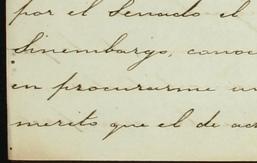 por el Senado el
Sinembargo, conoc
en procurarme un
merito que el de acr